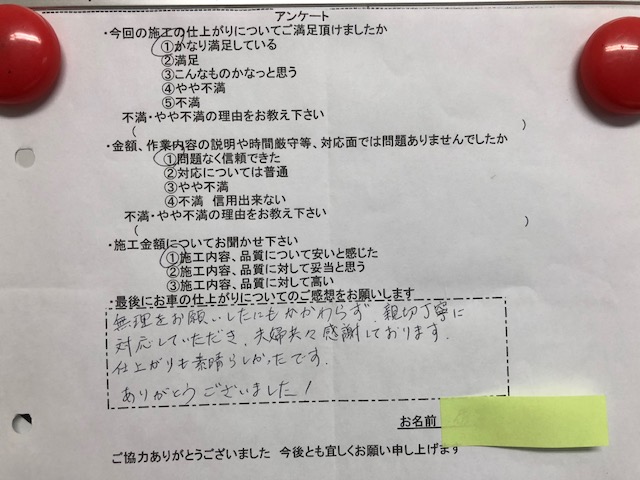 アンケート
・今回の施工の仕上がりについてご満足頂けましたか
①かなり満足している
②満足
③こんなものかなっと思う
④やや不満
⑤不満
不満・やや不満の理由をお教え下さい
(　)
・金額、作業内容の説明や時間厳守等、対応面では問題ありませんでしたか
①問題なく信頼できた
②対応については普通
③やや不満
④不満 信用出来ない
不満・やや不満の理由をお教え下さい
(　)
・施工金額についてお聞かせ下さい
①施工内容、品質について安いと感じた
②施工内容、品質に対して妥当と思う
③施工内容、品質に対して高い
・最後にお車の仕上がりについてのご感想をお願いします
無理をお願いしたにもかかわらず、親切丁寧に
対応していただき、夫婦共々感謝しております。
仕上がりも素晴らしかったです。
ありがとうございました!
お名前
ご協力ありがとうございました 今後とも宜しくお願い申し上げます